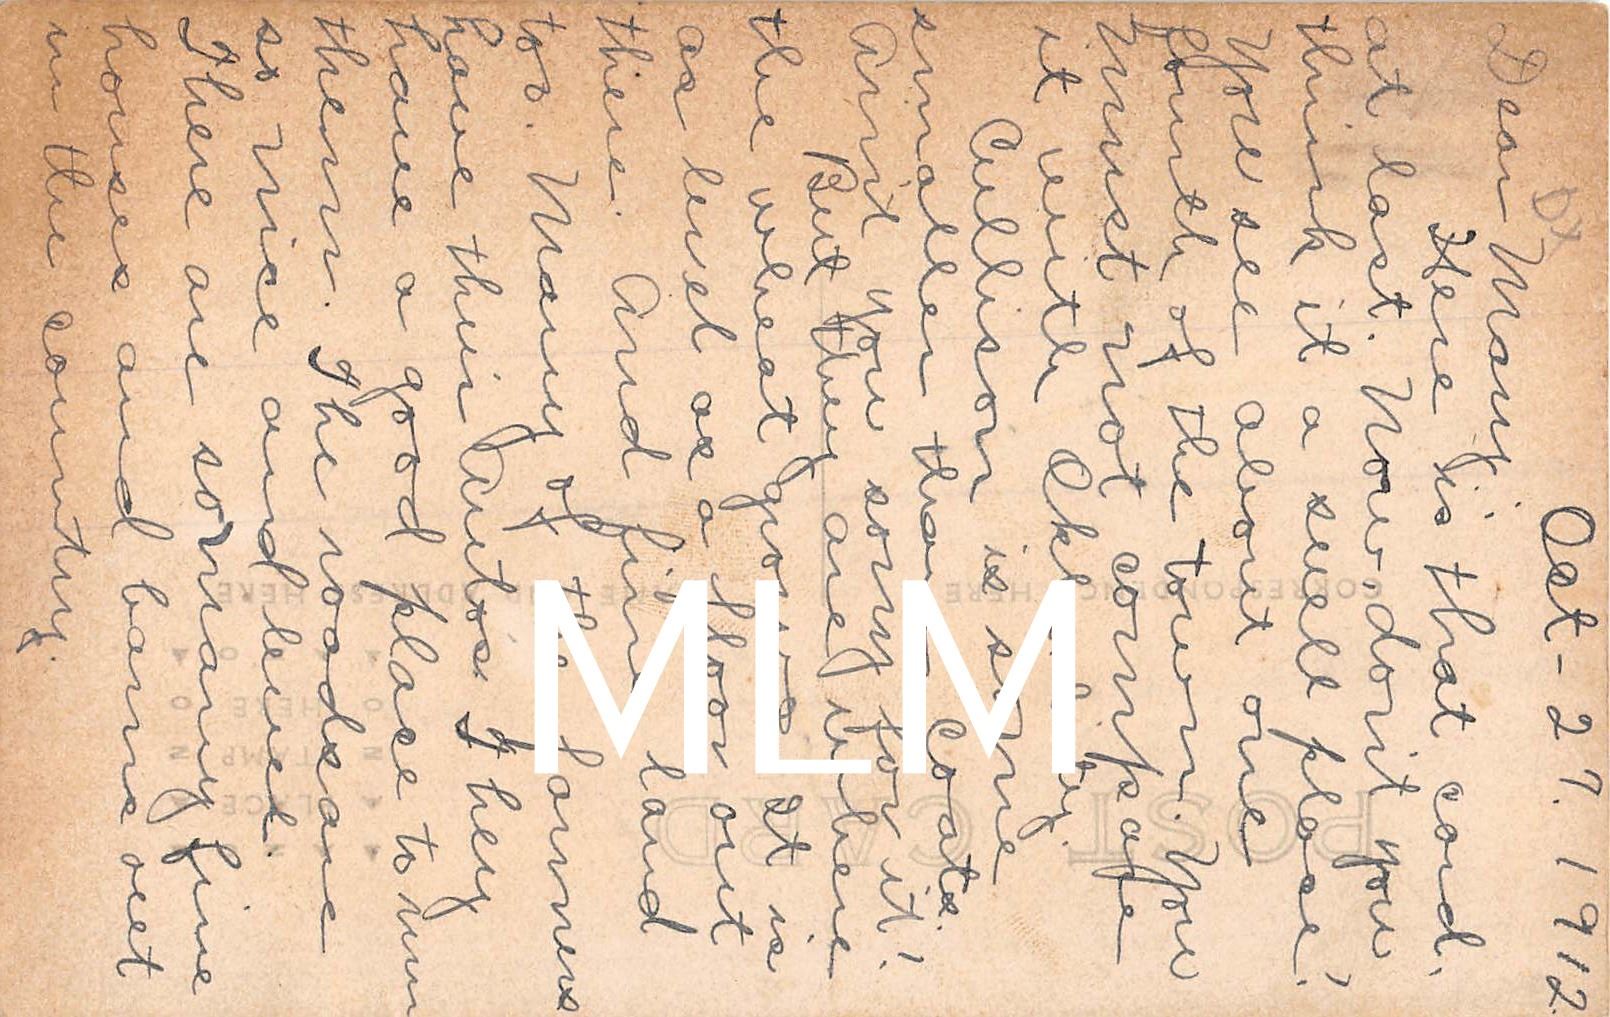 Oct-27.1912.
Dear Mary;
Here is that card.
at last. Now don't you
think it a swell place!
You see about one
fourth of the town. You
must not compare
it with Okla City.
Cullison is some
smaller than Coats.
Arnt you sorry for it!
But they are where
the wheat grows. It is
as level as a floor out
there. And fine land
too. Many of the farmers
have their Autos. They
have a good place to run
them. The roads are
so nice and level.
There are so many fine
houses and barns out
in the country.
CORRESPONDENCE HERE
NAME AND ADDRESS HERE
POST CARD
PLACE
STAMP
HERE
MLM